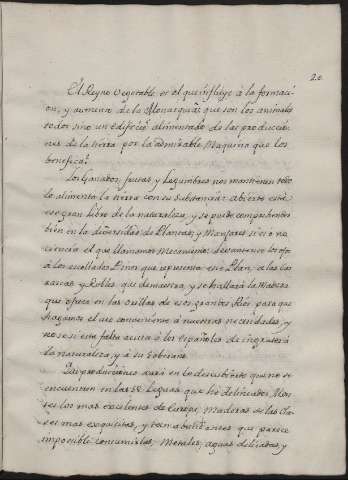 20
El Reyno Vegetable es el que influye à la formaci-
on, y aumento de la Monarquia: que son los animales
todos sino un edificio alimentado de las produccio-
nes de la tierra por la admirable Maquina que los
benefica?
Los Ganados, frutas y Legumbres nos mantienen todo
lo alimenta la tierra con su Substancia: abierto está
ese gran libro de la naturaleza, y se puede comprehender
bien en la diversidad de Plantas, y Manjares si es ò no
ciencia el que llamamos Mecanismo: levantense los ojos
à los encumbrados Pinos que representa este Plan, a las
y Robles que demuestra, y se hallará la Madera
que ofrece en las orillas de esos grandes Rios para que
hagamos el uso conveniente à nuestras necesidades, y
no se si esta falta acusa à los Españoles de ingratos à
la naturaleza, y à su Soberano.
Las producciones raras en lo descubierto que no se
encuentren en las 58 Leguas que hé delineado: Mon-
tes los mas excelentes de Europa, Maderas de las Cla-
ses mas exquisitas, y tan abundantes que parece
imposible consumirlas; Metales, aguas delicadas, y